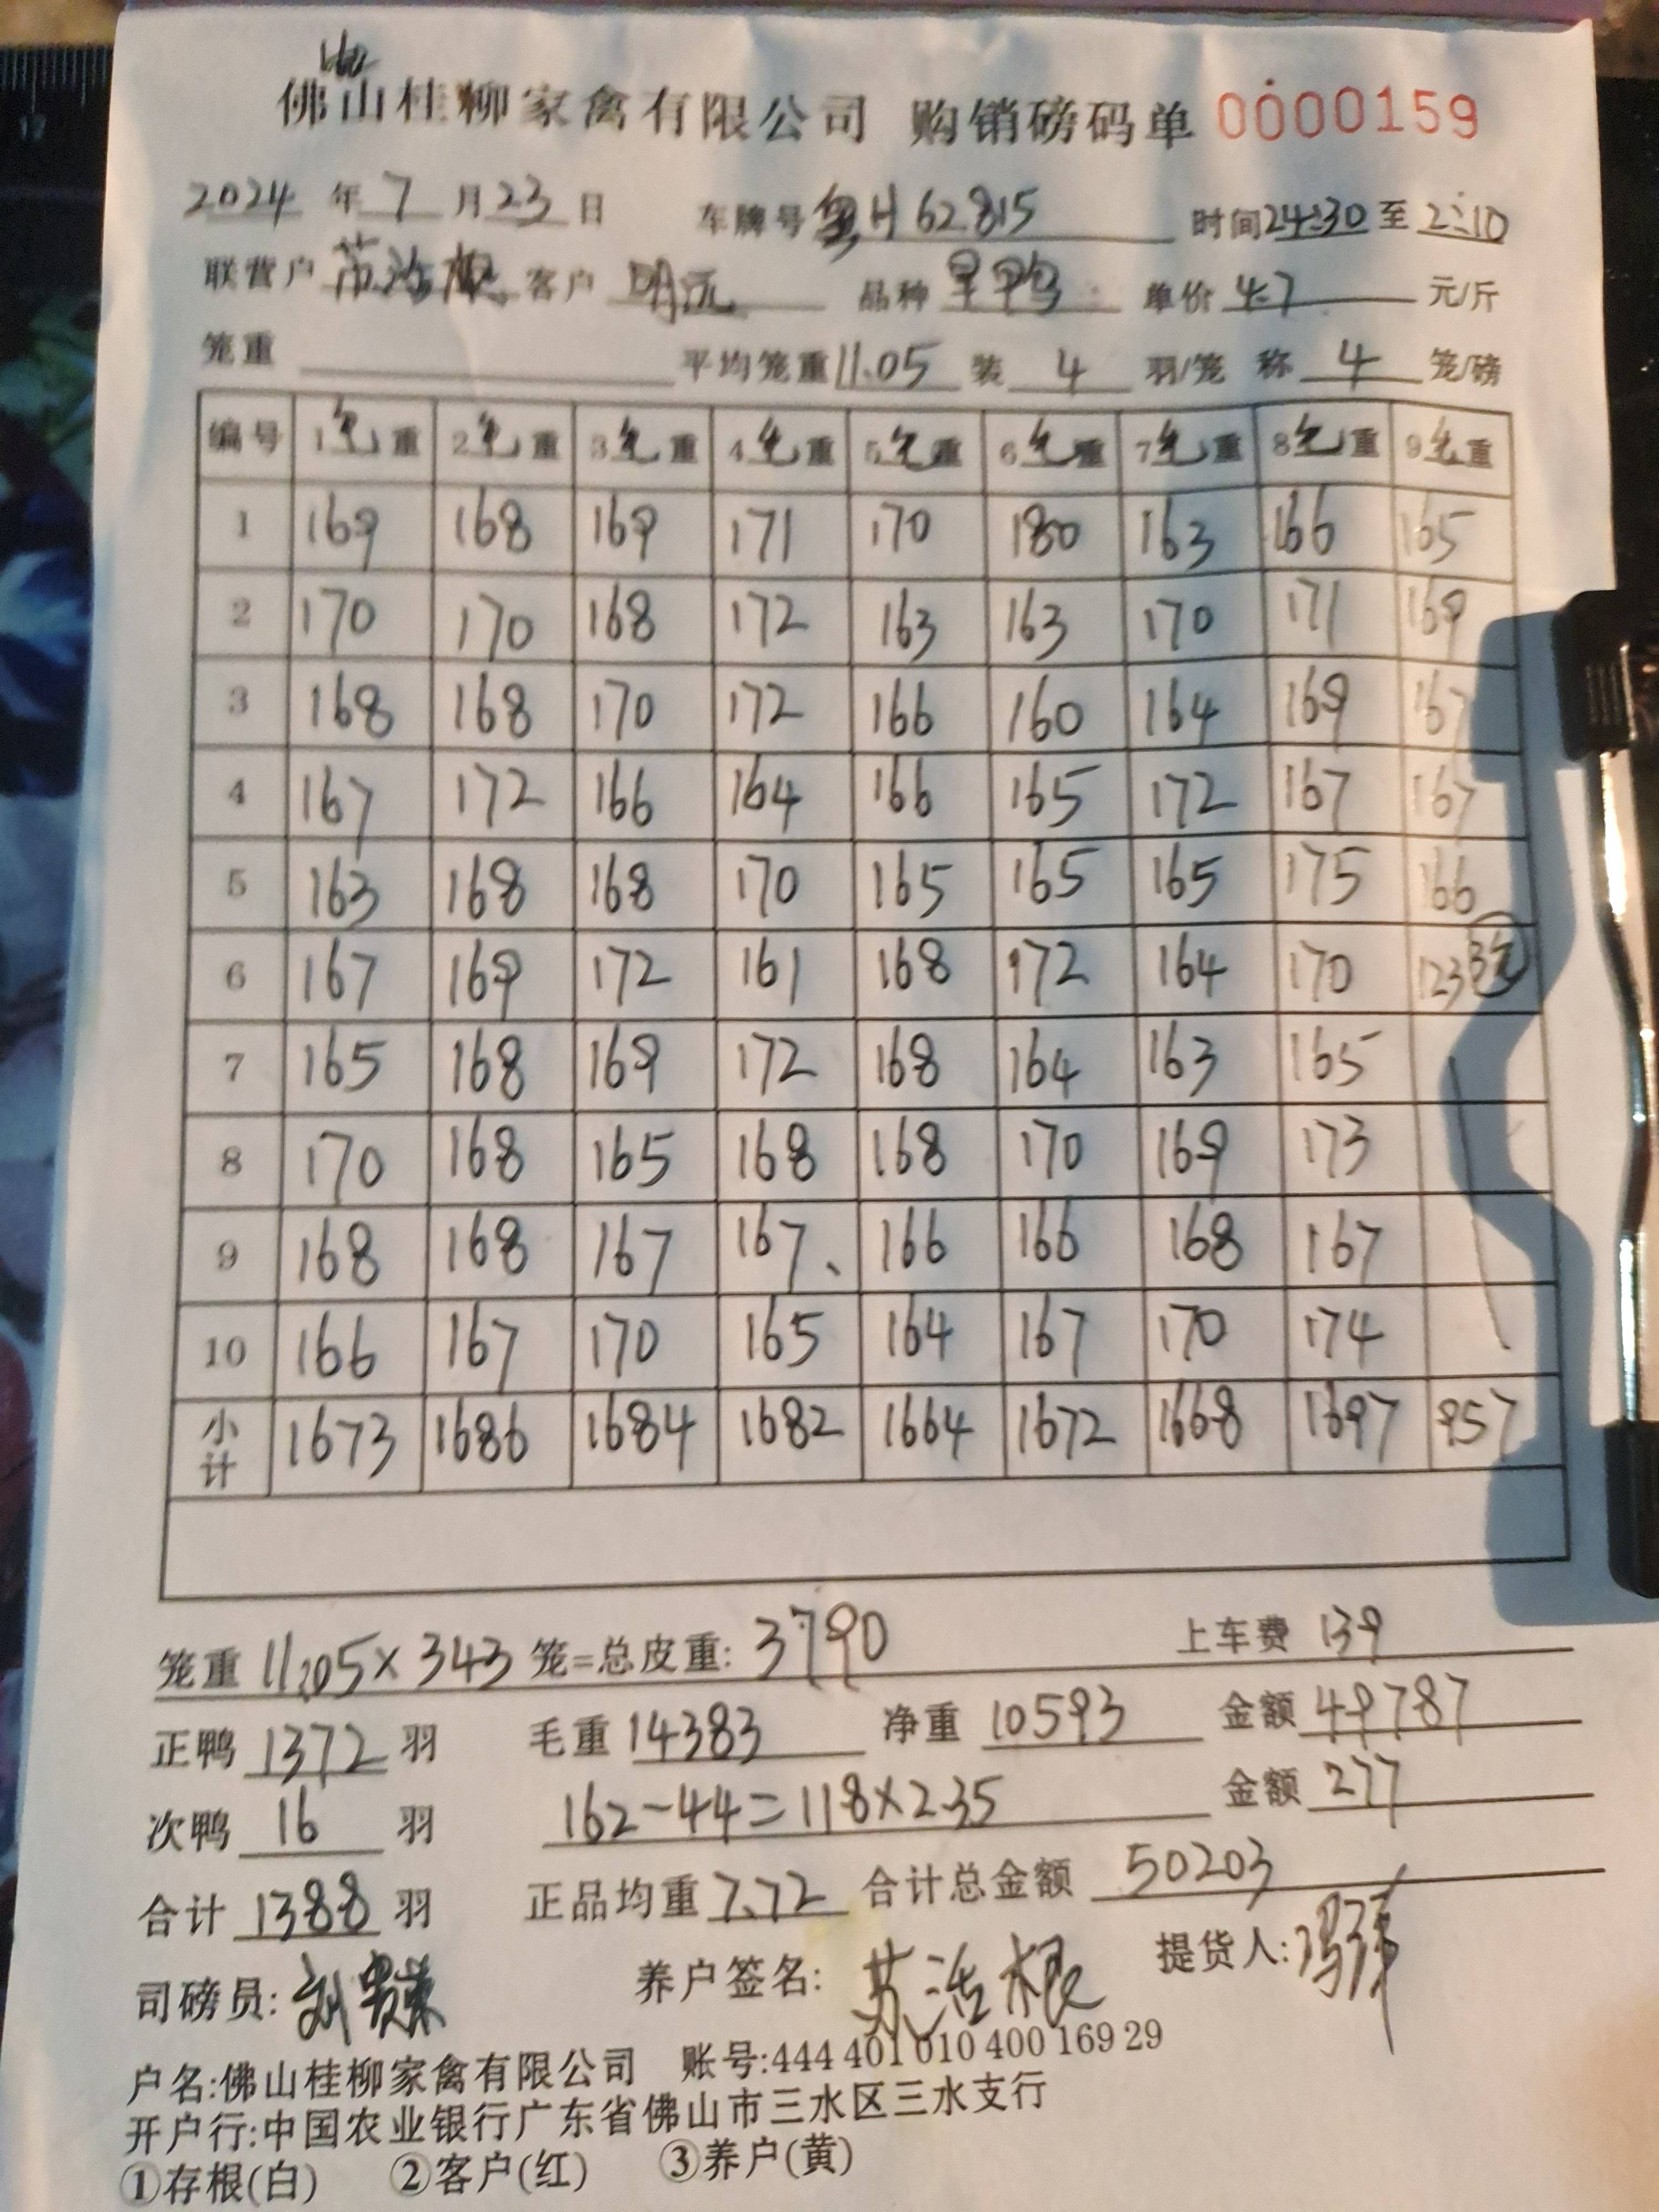 162
佛山桂柳家禽有限公司 购销磅码单 0000159
2024 年 7 月 23 日 车牌号 粤H 62815 时间 24:30 至 2:10
联营户 苏活根 客户 明沅 品种 旱鸭 单价 4.7 元/斤
笼重 平均笼重 11.05 装 4 羽/笼 称 4 笼/磅
编号 1毛重 2毛重 3毛重 4毛重 5毛重 6毛重 7毛重 8毛重 9毛重
1 169 168 169 171 170 180 163 166 165
2 170 170 168 172 163 163 170 171 169
3 168 168 170 172 166 160 164 169 167
4 167 172 166 164 166 165 172 167 167
5 163 168 168 170 165 165 165 175 166
6 167 169 172 161 168 172 164 170 123 3笼
7 165 168 169 172 168 164 163 165
8 170 168 165 168 168 170 169 173
9 168 168 167 167 166 166 168 167
10 166 167 170 165 164 167 170 174
小计 1673 1686 1684 1682 1664 1672 1668 1697 957
笼重 11.05×343 笼=总皮重: 3790 上车费 139
正鸭 1372 羽 毛重 14383 净重 10593 金额 49787
次鸭 16 羽 162-44=118×2.35 金额 277
合计 1388 羽 正品均重 7.72 合计总金额 50203
司磅员: 刘 养户签名: 苏活根 提货人: 冯
户名:佛山桂柳家禽有限公司 账号:444 401 010 400 169 29
开户行:中国农业银行广东省佛山市三水区三水支行
①存根(白) ②客户(红) ③养户(黄)